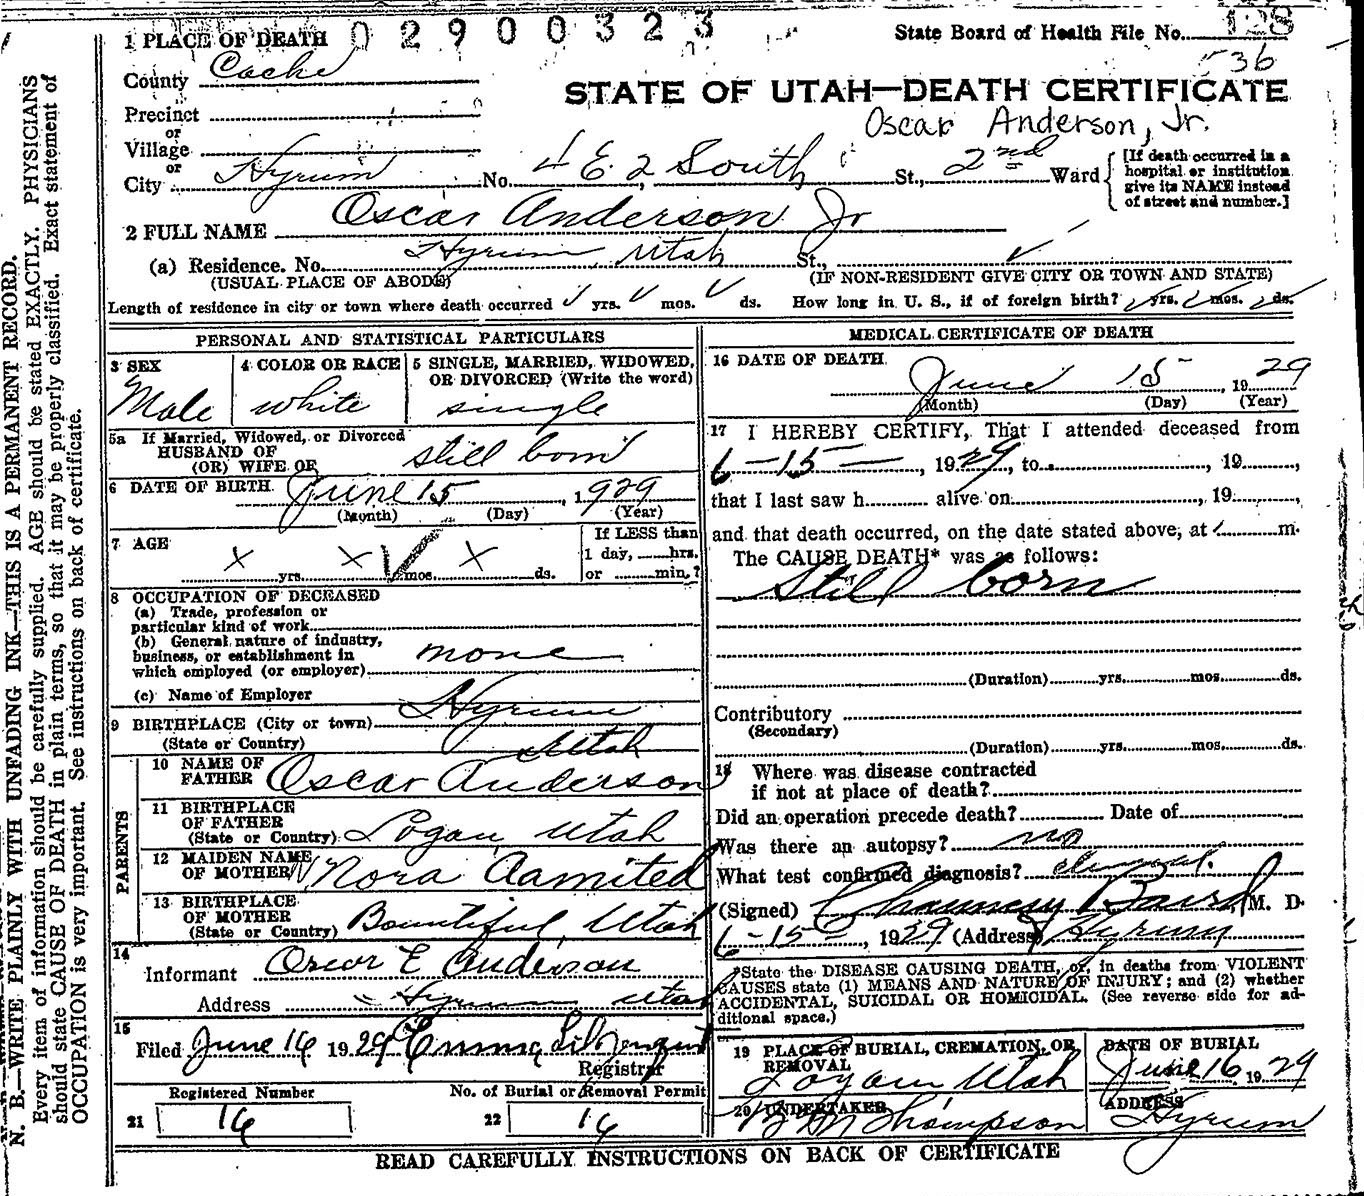 02900323
State Board of Health File No. 128
536
1 PLACE OF DEATH
County Cache
STATE OF UTAH—DEATH CERTIFICATE
Oscar Anderson, Jr.
Precinct
or
Village
or
City Hyrum No. 4 E 2 South St., 2nd Ward
[If death occurred in a
hospital or institution
give its NAME instead
of street and number.]
2 FULL NAME Oscar Anderson Jr
(a) Residence. No. Hyrum, Utah St.,
(USUAL PLACE OF ABODE) (IF NON-RESIDENT GIVE CITY OR TOWN AND STATE)
Length of residence in city or town where death occurred yrs. mos. ds. How long in U. S., if of foreign birth? yrs. mos. ds.
PERSONAL AND STATISTICAL PARTICULARS
3 SEX
Male
4 COLOR OR RACE
white
5 SINGLE, MARRIED, WIDOWED,
OR DIVORCED (Write the word)
single
5a If Married, Widowed, or Divorced
HUSBAND OF
(OR) WIFE OF
still born
6 DATE OF BIRTH June 15, 1929
(Month) (Day) (Year)
7 AGE
x yrs. x mos. x ds.
If LESS than
1 day, hrs.
or min.?
8 OCCUPATION OF DECEASED
(a) Trade, profession or
particular kind of work
(b) General nature of industry,
business, or establishment in
which employed (or employer) none
(c) Name of Employer
9 BIRTHPLACE (City or town) Hyrum
(State or Country) Utah
PARENTS
10 NAME OF
FATHER Oscar Anderson
11 BIRTHPLACE
OF FATHER
(State or Country) Logan, Utah
12 MAIDEN NAME
OF MOTHER Nora Aamited
13 BIRTHPLACE
OF MOTHER
(State or Country) Bountiful, Utah
14
Informant Oscar E Anderson
Address Hyrum Utah
15
Filed June 16 1929 Emma
Registrar
Registered Number
21 16
No. of Burial or Removal Permit
22 16
MEDICAL CERTIFICATE OF DEATH
16 DATE OF DEATH
June 15, 1929
(Month) (Day) (Year)
17 I HEREBY CERTIFY, That I attended deceased from
6-15-, 1929, to, 19,
that I last saw h alive on, 19,
and that death occurred, on the date stated above, at m.
The CAUSE DEATH* was as follows:
Still born
(Duration) yrs. mos. ds.
Contributory
(Secondary)
(Duration) yrs. mos. ds.
18 Where was disease contracted
if not at place of death?
Did an operation precede death? Date of
Was there an autopsy? no
What test confirmed diagnosis?
(Signed) Chauncey Baird, M. D.
6-15-, 1929 (Address) Hyrum
*State the DISEASE CAUSING DEATH, or, in deaths from VIOLENT
CAUSES state (1) MEANS AND NATURE OF INJURY; and (2) whether
ACCIDENTAL, SUICIDAL OR HOMICIDAL. (See reverse side for ad-
ditional space.)
19 PLACE OF BURIAL, CREMATION, OR
REMOVAL
Logan Utah
DATE OF BURIAL
June 16 1929
20 UNDERTAKER
Thompson
ADDRESS
Hyrum
READ CAREFULLY INSTRUCTIONS ON BACK OF CERTIFICATE
N. B.—WRITE PLAINLY WITH UNFADING INK—THIS IS A PERMANENT RECORD.
Every item of information should be carefully supplied. AGE should be stated EXACTLY. PHYSICIANS
should state CAUSE OF DEATH in plain terms, so that it may be properly classified. Exact statement of
OCCUPATION is very important. See instructions on back of certificate.